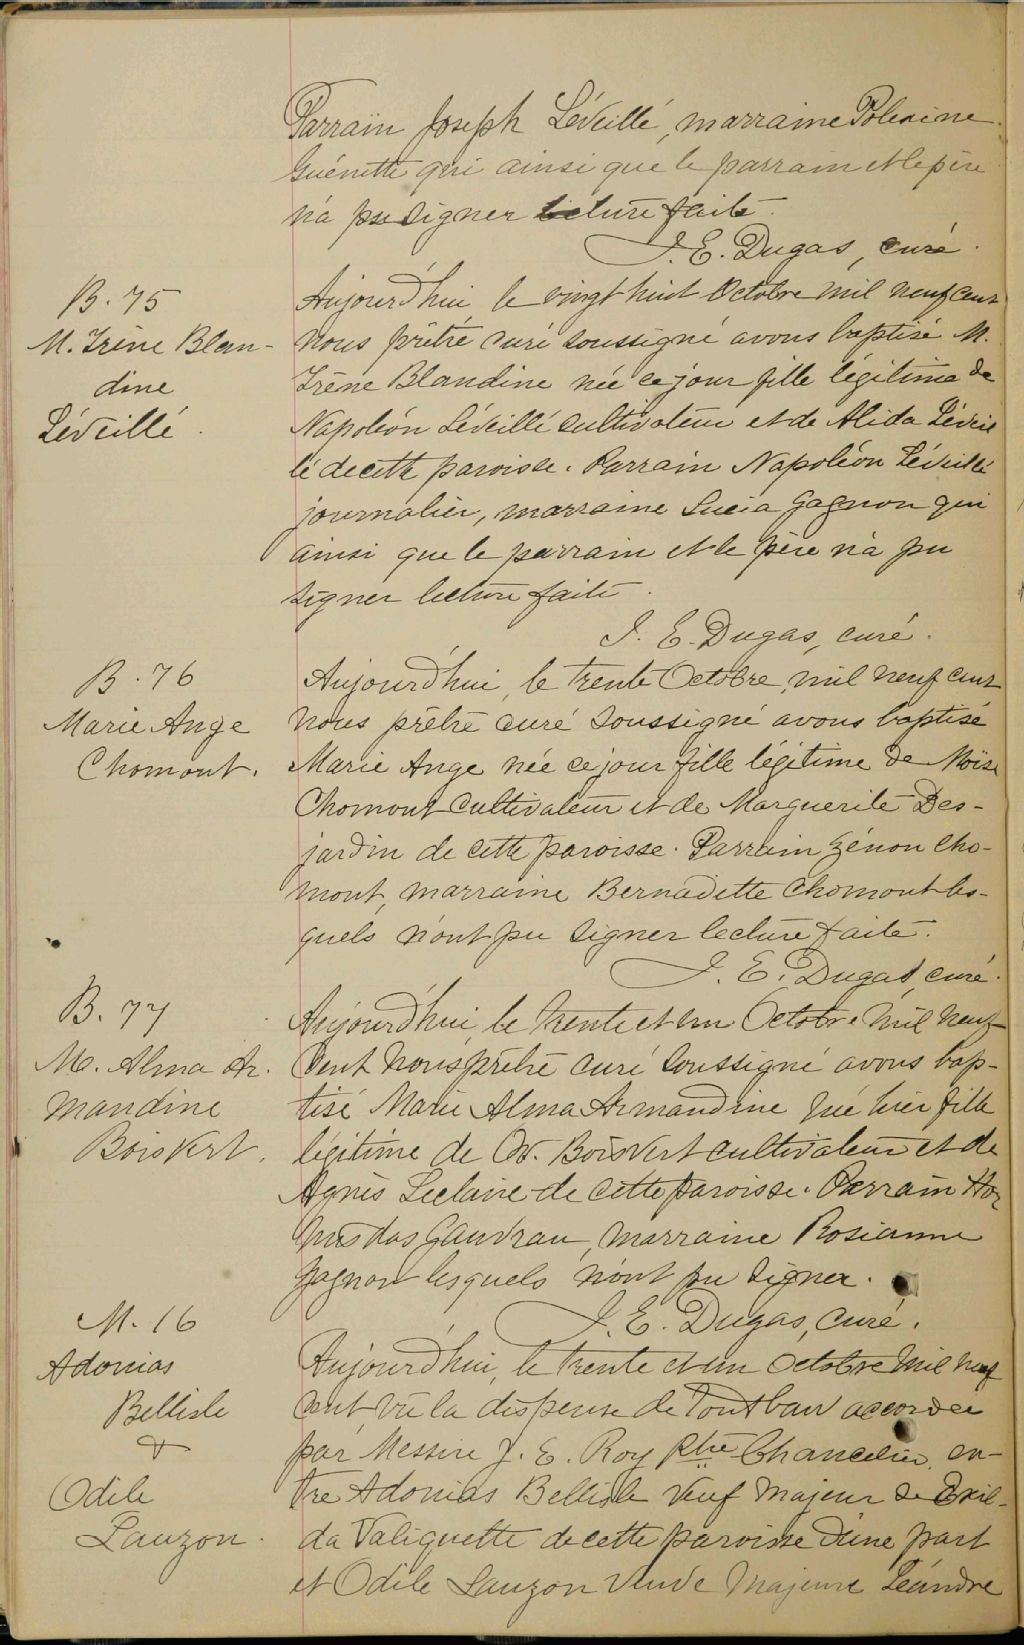 Parrain Joseph Léveillé, marraine Polexine
Guénette qui ainsi que le parrain et le père
n'a pu signer lecture faite.
J. E. Dugas, curé.
B. 75
M. Irène Blan-
dine
Léveillé.
Aujourd'hui le vingt huit Octobre mil neuf cent
nous prêtre curé soussigné avons baptisé M.
Irène Blandine née ce jour fille légitime de
Napoléon Léveillé cultivateur et de Alida Léveil
lé de cette paroisse. Parrain Napoléon Léveillé
journalier, marraine Lucia Gagnon qui
ainsi que le parrain et le père n'a pu
signer lecture faite.
J. E. Dugas, curé.
B. 76
Marie Ange
Chomont.
Aujourd'hui, le trente Octobre, mil neuf cent
nous prêtre curé soussigné avons baptisé
Marie Ange née ce jour fille légitime de Moïse
Chomont cultivateur et de Marguerite Des-
jardin de cette paroisse. Parrain Zénon Cho-
mont, marraine Bernadette Chomont les-
quels n'ont pu signer lecture faite.
J. E. Dugas, curé.
B. 77
M. Alma Ar.
mandine
Boisvert.
Aujourd'hui, le trente et un Octobre mil neuf
cent nous prêtre curé soussigné avons bap-
tisé Marie Alma Armandine née hier fille
légitime de Boisvert cultivateur et de
Agnès Leclaire de cette paroisse. Parrain Hor
misdas Gaudrau, marraine Rosianne
Gagnon lesquels n'ont pu signer.
J. E. Dugas, curé.
M. 16
Adonias
Bellisle
&
Odile
Lauzon.
Aujourd'hui, le trente et un Octobre mil neuf
cent vû la dispense de tout ban accordée
par Messire J. E. Roy Ptre Chancelier, en-
tre Adonias Bellisle veuf majeur de Exil-
da Valiquette de cette paroisse d'une part
et Odile Lauzon veuve majeure Léandre